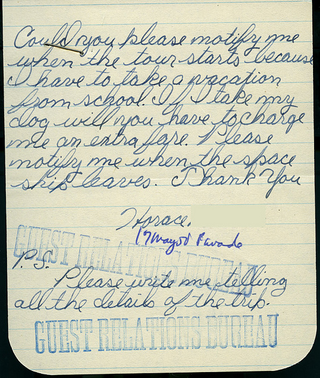 Could you please notify me
when the tour starts because
I have to take a vacation
from school. If I take my
dog will you have to charge
me an extra fare. Please
notify me when the space
ship leaves. Thank You
Horace.
GUEST RELATIONS BUREAU
P.S.
Please write me telling
all the details of the trip.
GUEST RELATIONS BUREAU